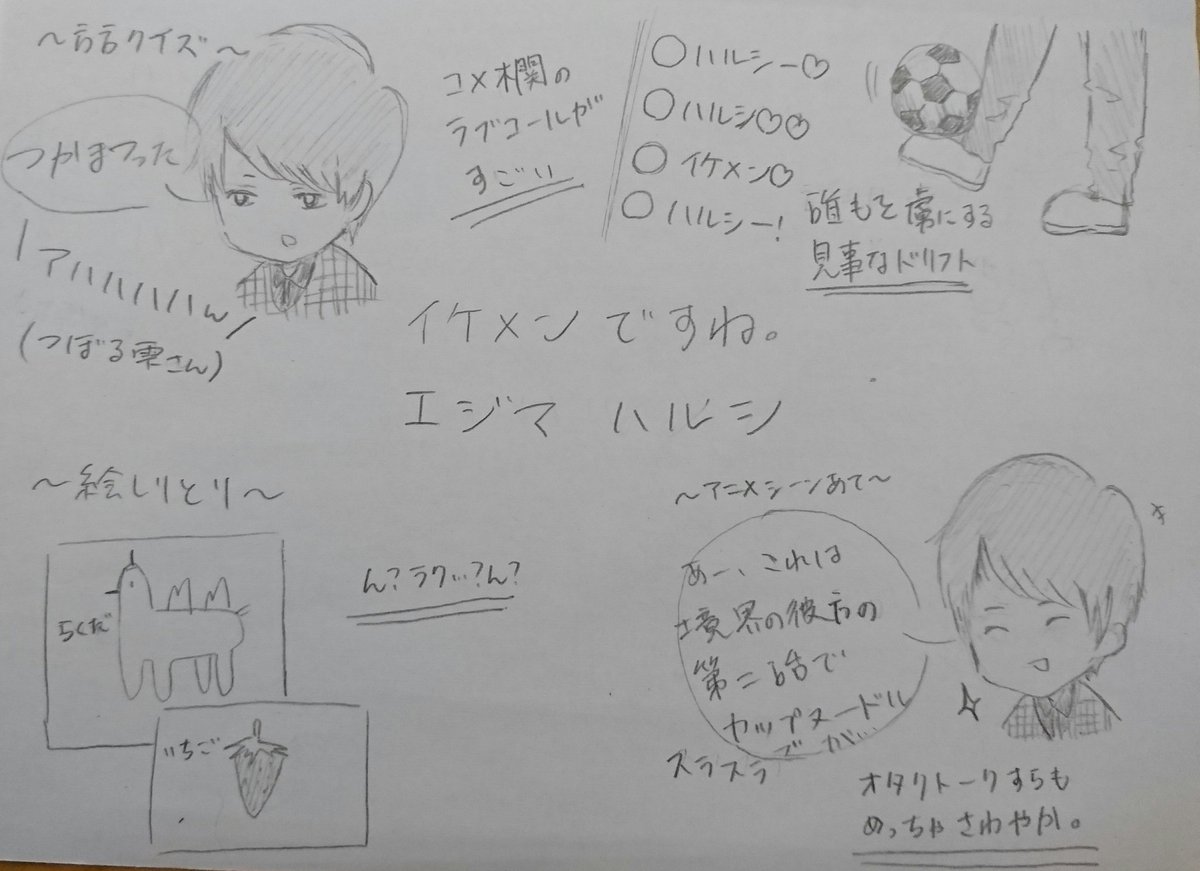 〜方言クイズ〜
つかまつった
アハハハハハん
(つぼる雫さん)
コメ欄の
ラブコールが
すごい
○ハルシー♡
○ハルシ♡♡
○イケメン♡
○ハルシー!
誰もを虜にする
見事なドリフト
イケメンですね。
エジマ ハルシ
〜絵しりとり〜
らくだ
いちご
ん?ラク…?ん?
〜アニメシーンあて〜
あー、これは
境界の彼方の
第二話で
カップヌードル
が…
スラスラ
オタクトークすらも
めっちゃさわやか。